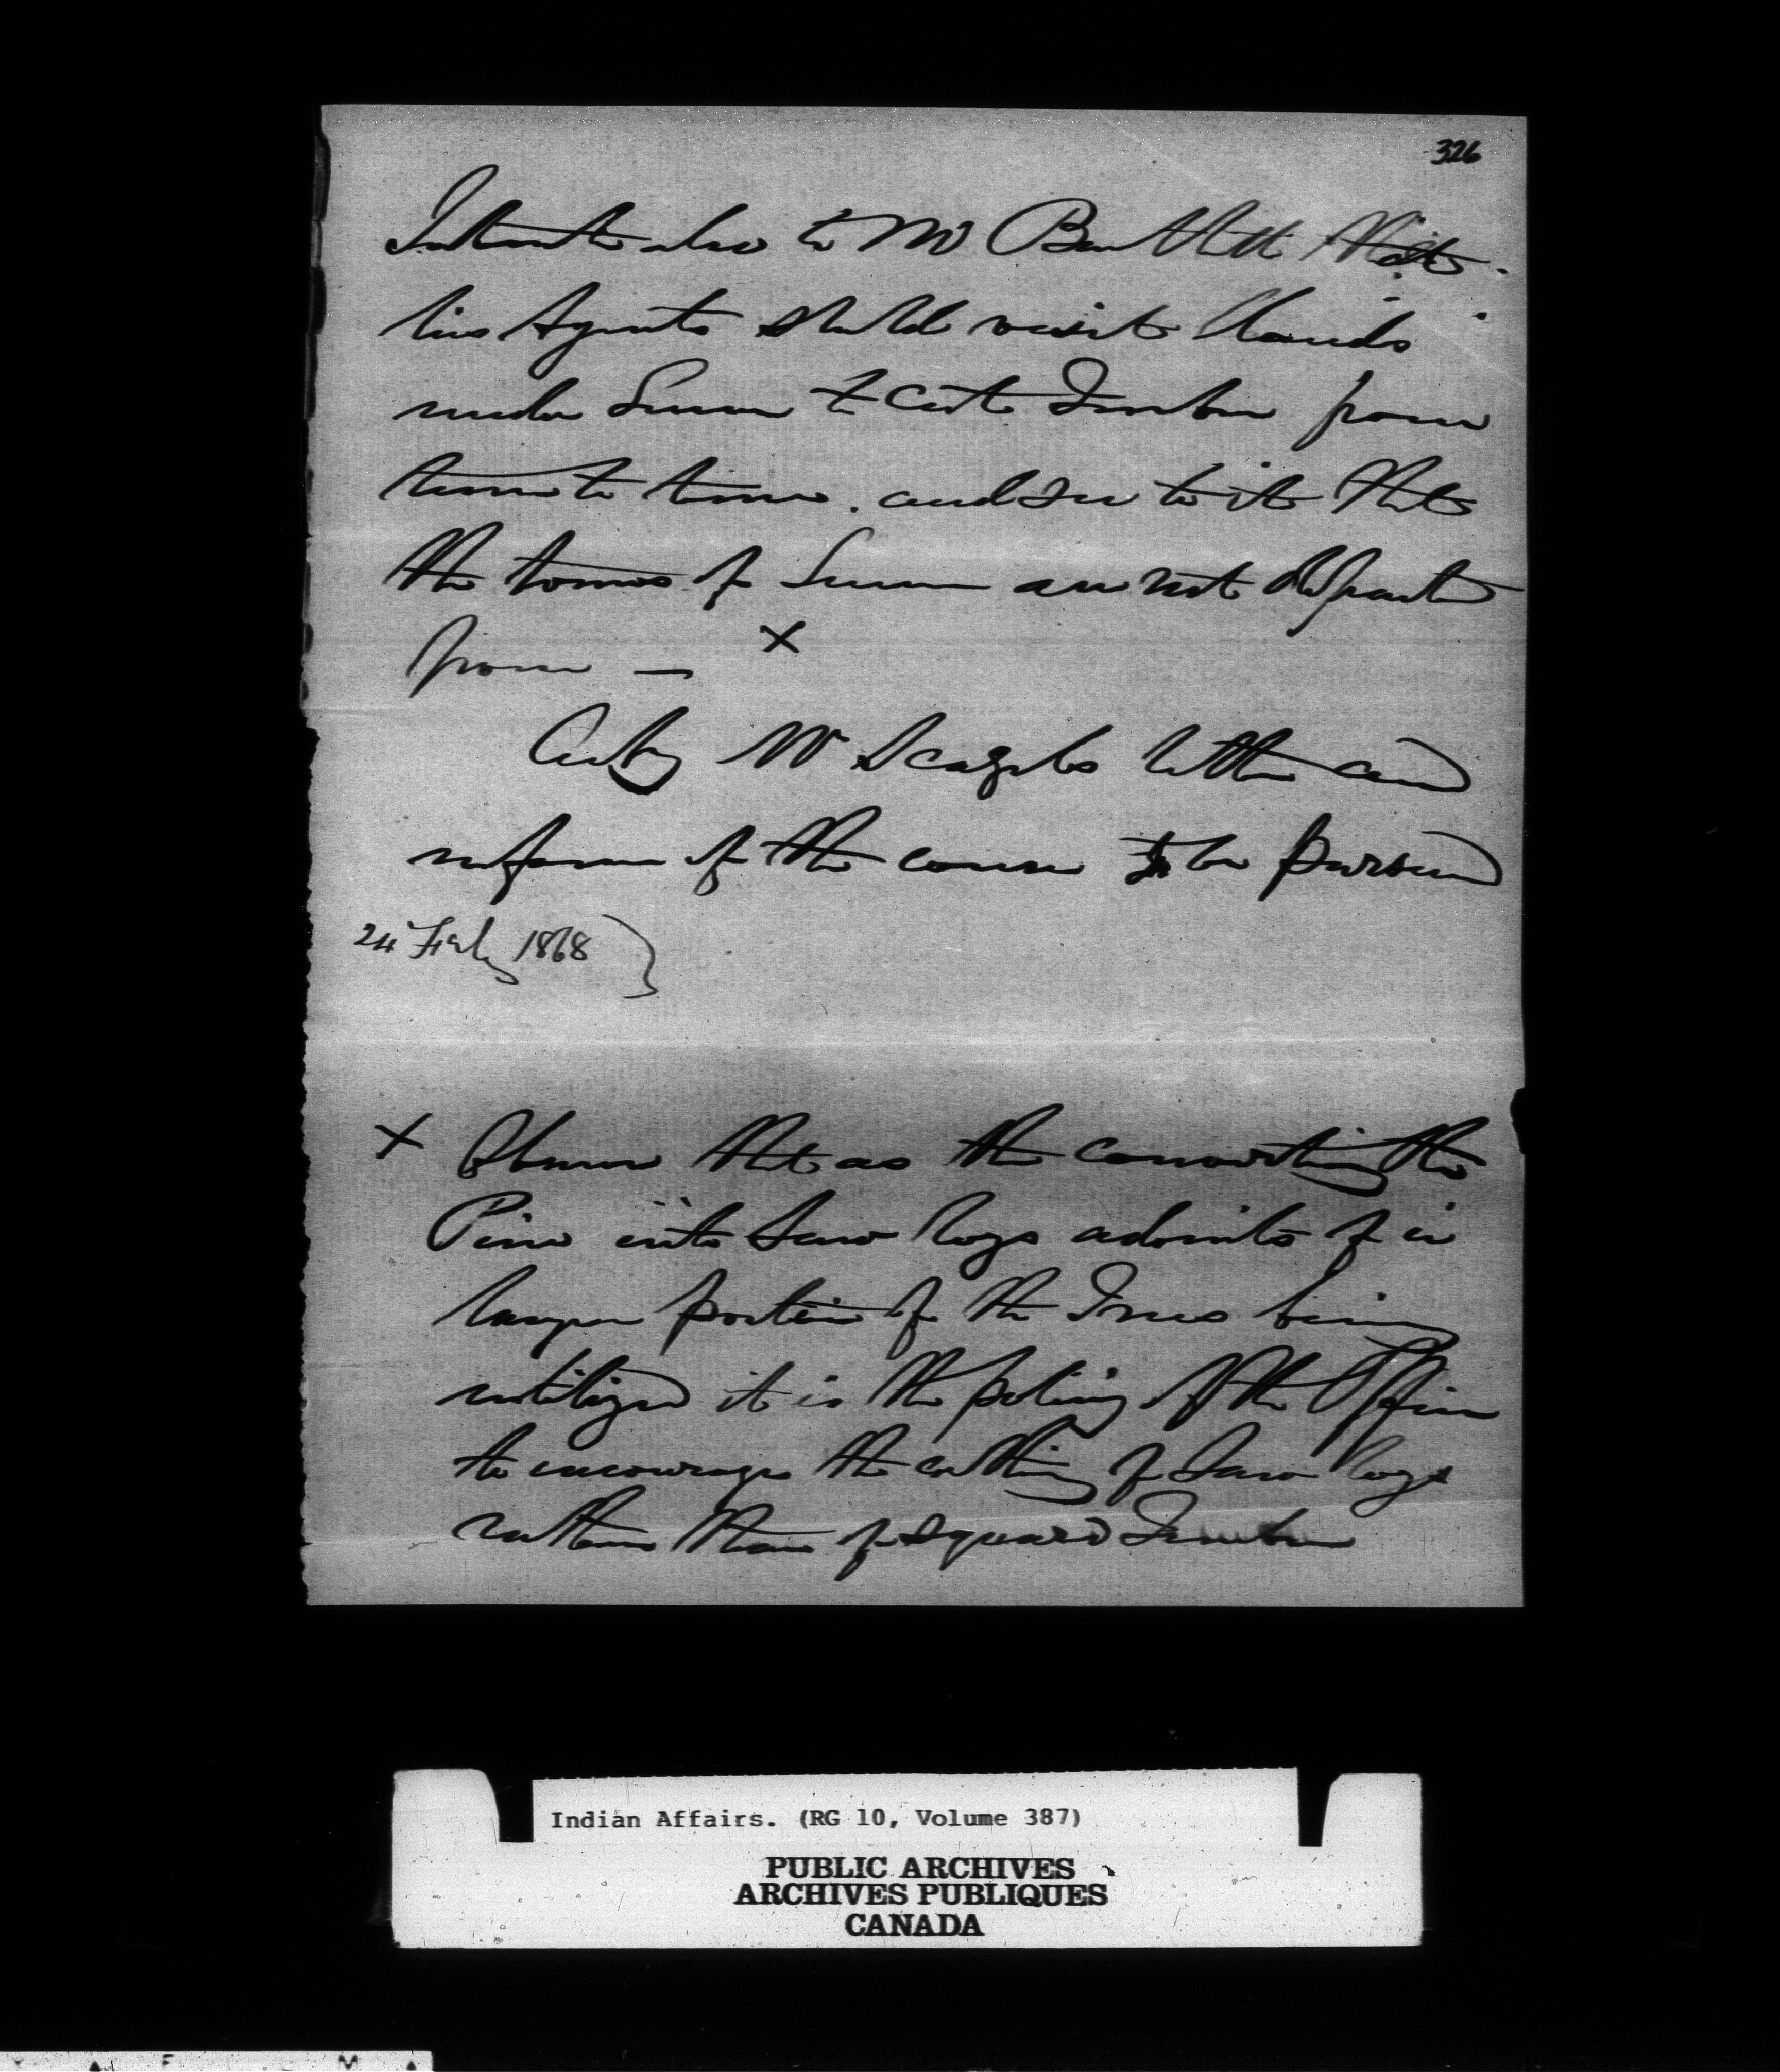 326
Intimate also to Mr Bartlett that
his Agents should visit lands
under License to cut Timber from
time to time. and see to it that
the terms of License are not departed
from — ×
Ack Mr Scagels letter and
inform of the course to be pursued
24 Feby 1868
× Observe that as the converting the
Pine into Saw logs admits of a
larger portion of the Trees being
utilized it is the policy of the Office
to encourage the cutting of Saw logs
rather than of Squared Timber
Indian Affairs. (RG 10, Volume 387)
PUBLIC ARCHIVES
ARCHIVES PUBLIQUES
CANADA